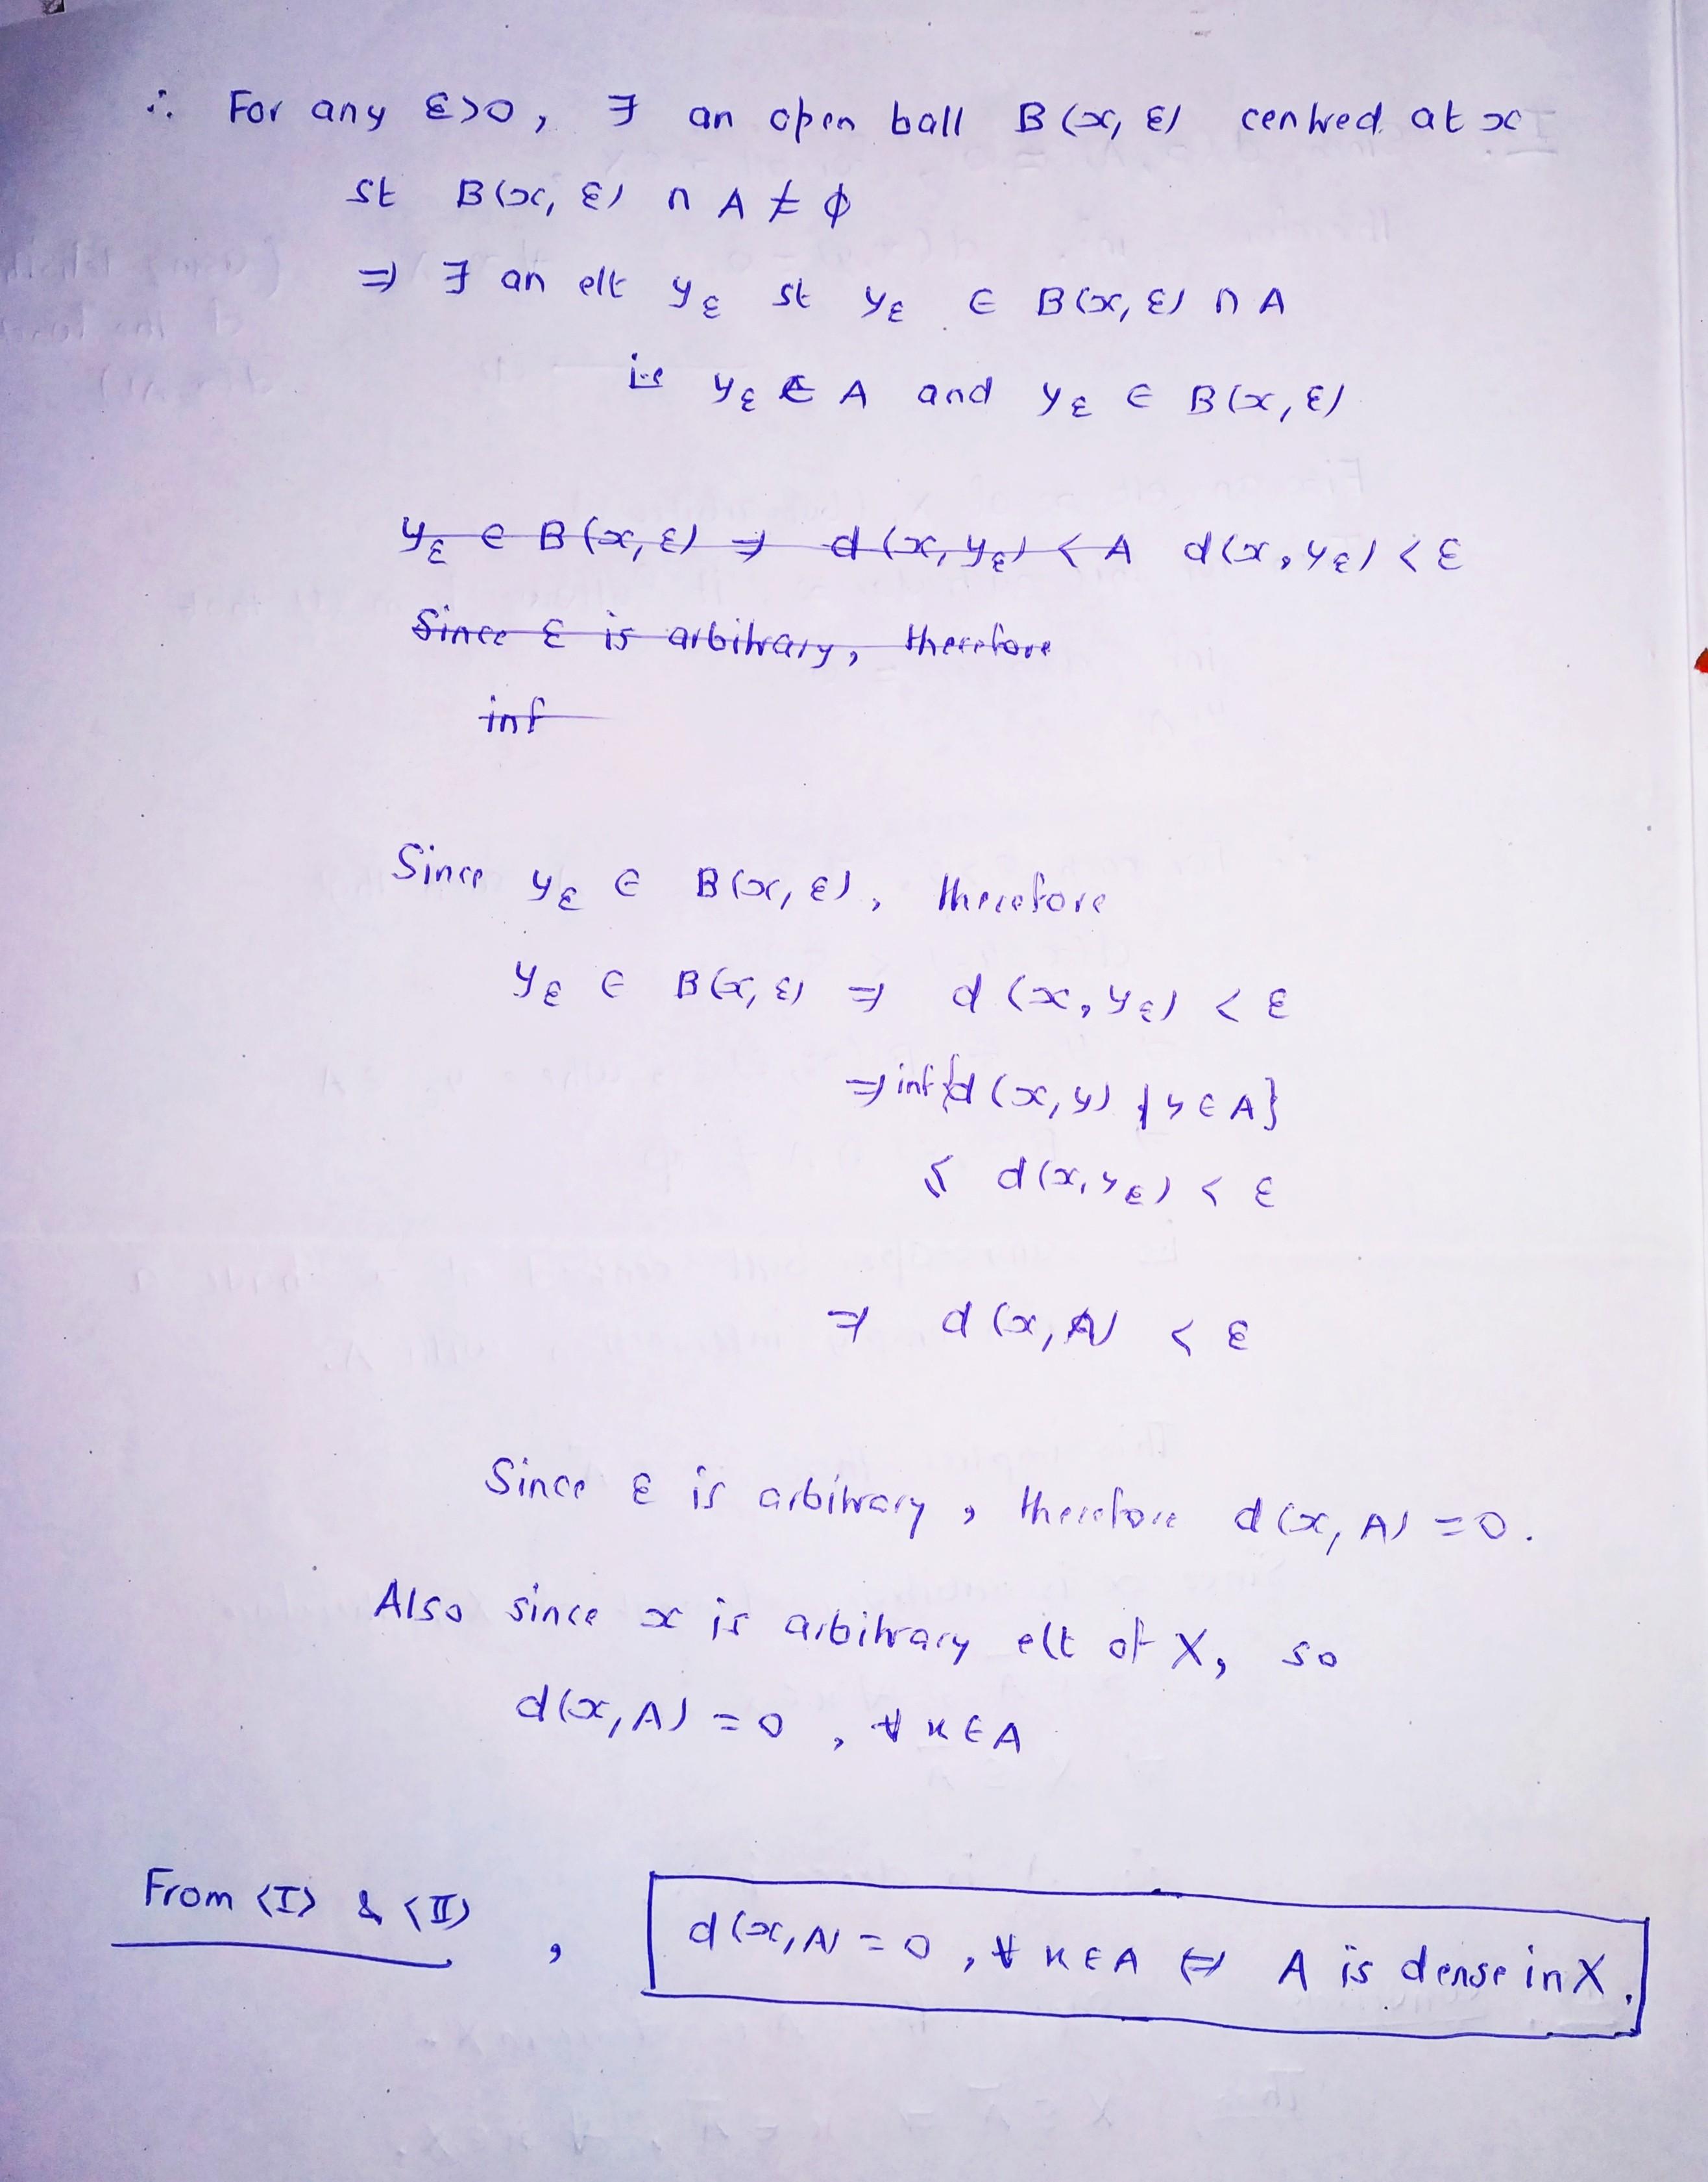 ∴ For any ε>0, ∃ an open ball B(x, ε) centred at x
st B(x, ε) ∩ A ≠ ϕ
⇒ ∃ an elt yε st yε ∈ B(x, ε) ∩ A
i.e yε ∈ A and yε ∈ B(x, ε)
yε ∈ B(x, ε) ⇒ d(x, yε) < A d(x, yε) < ε
Since ε is arbitrary, therefore
inf
Since yε ∈ B(x, ε), therefore
yε ∈ B(x, ε) ⇒ d(x, yε) < ε
⇒ inf{d(x, y) | y ∈ A}
≤ d(x, yε) < ε
⇒ d(x, A) < ε
Since ε is arbitrary, therefore d(x, A) = 0.
Also since x is arbitrary elt of X, so
d(x, A) = 0, ∀ x ∈ A
From <I> & <II>, d(x, A) = 0, ∀ x ∈ A ⇔ A is dense in X.